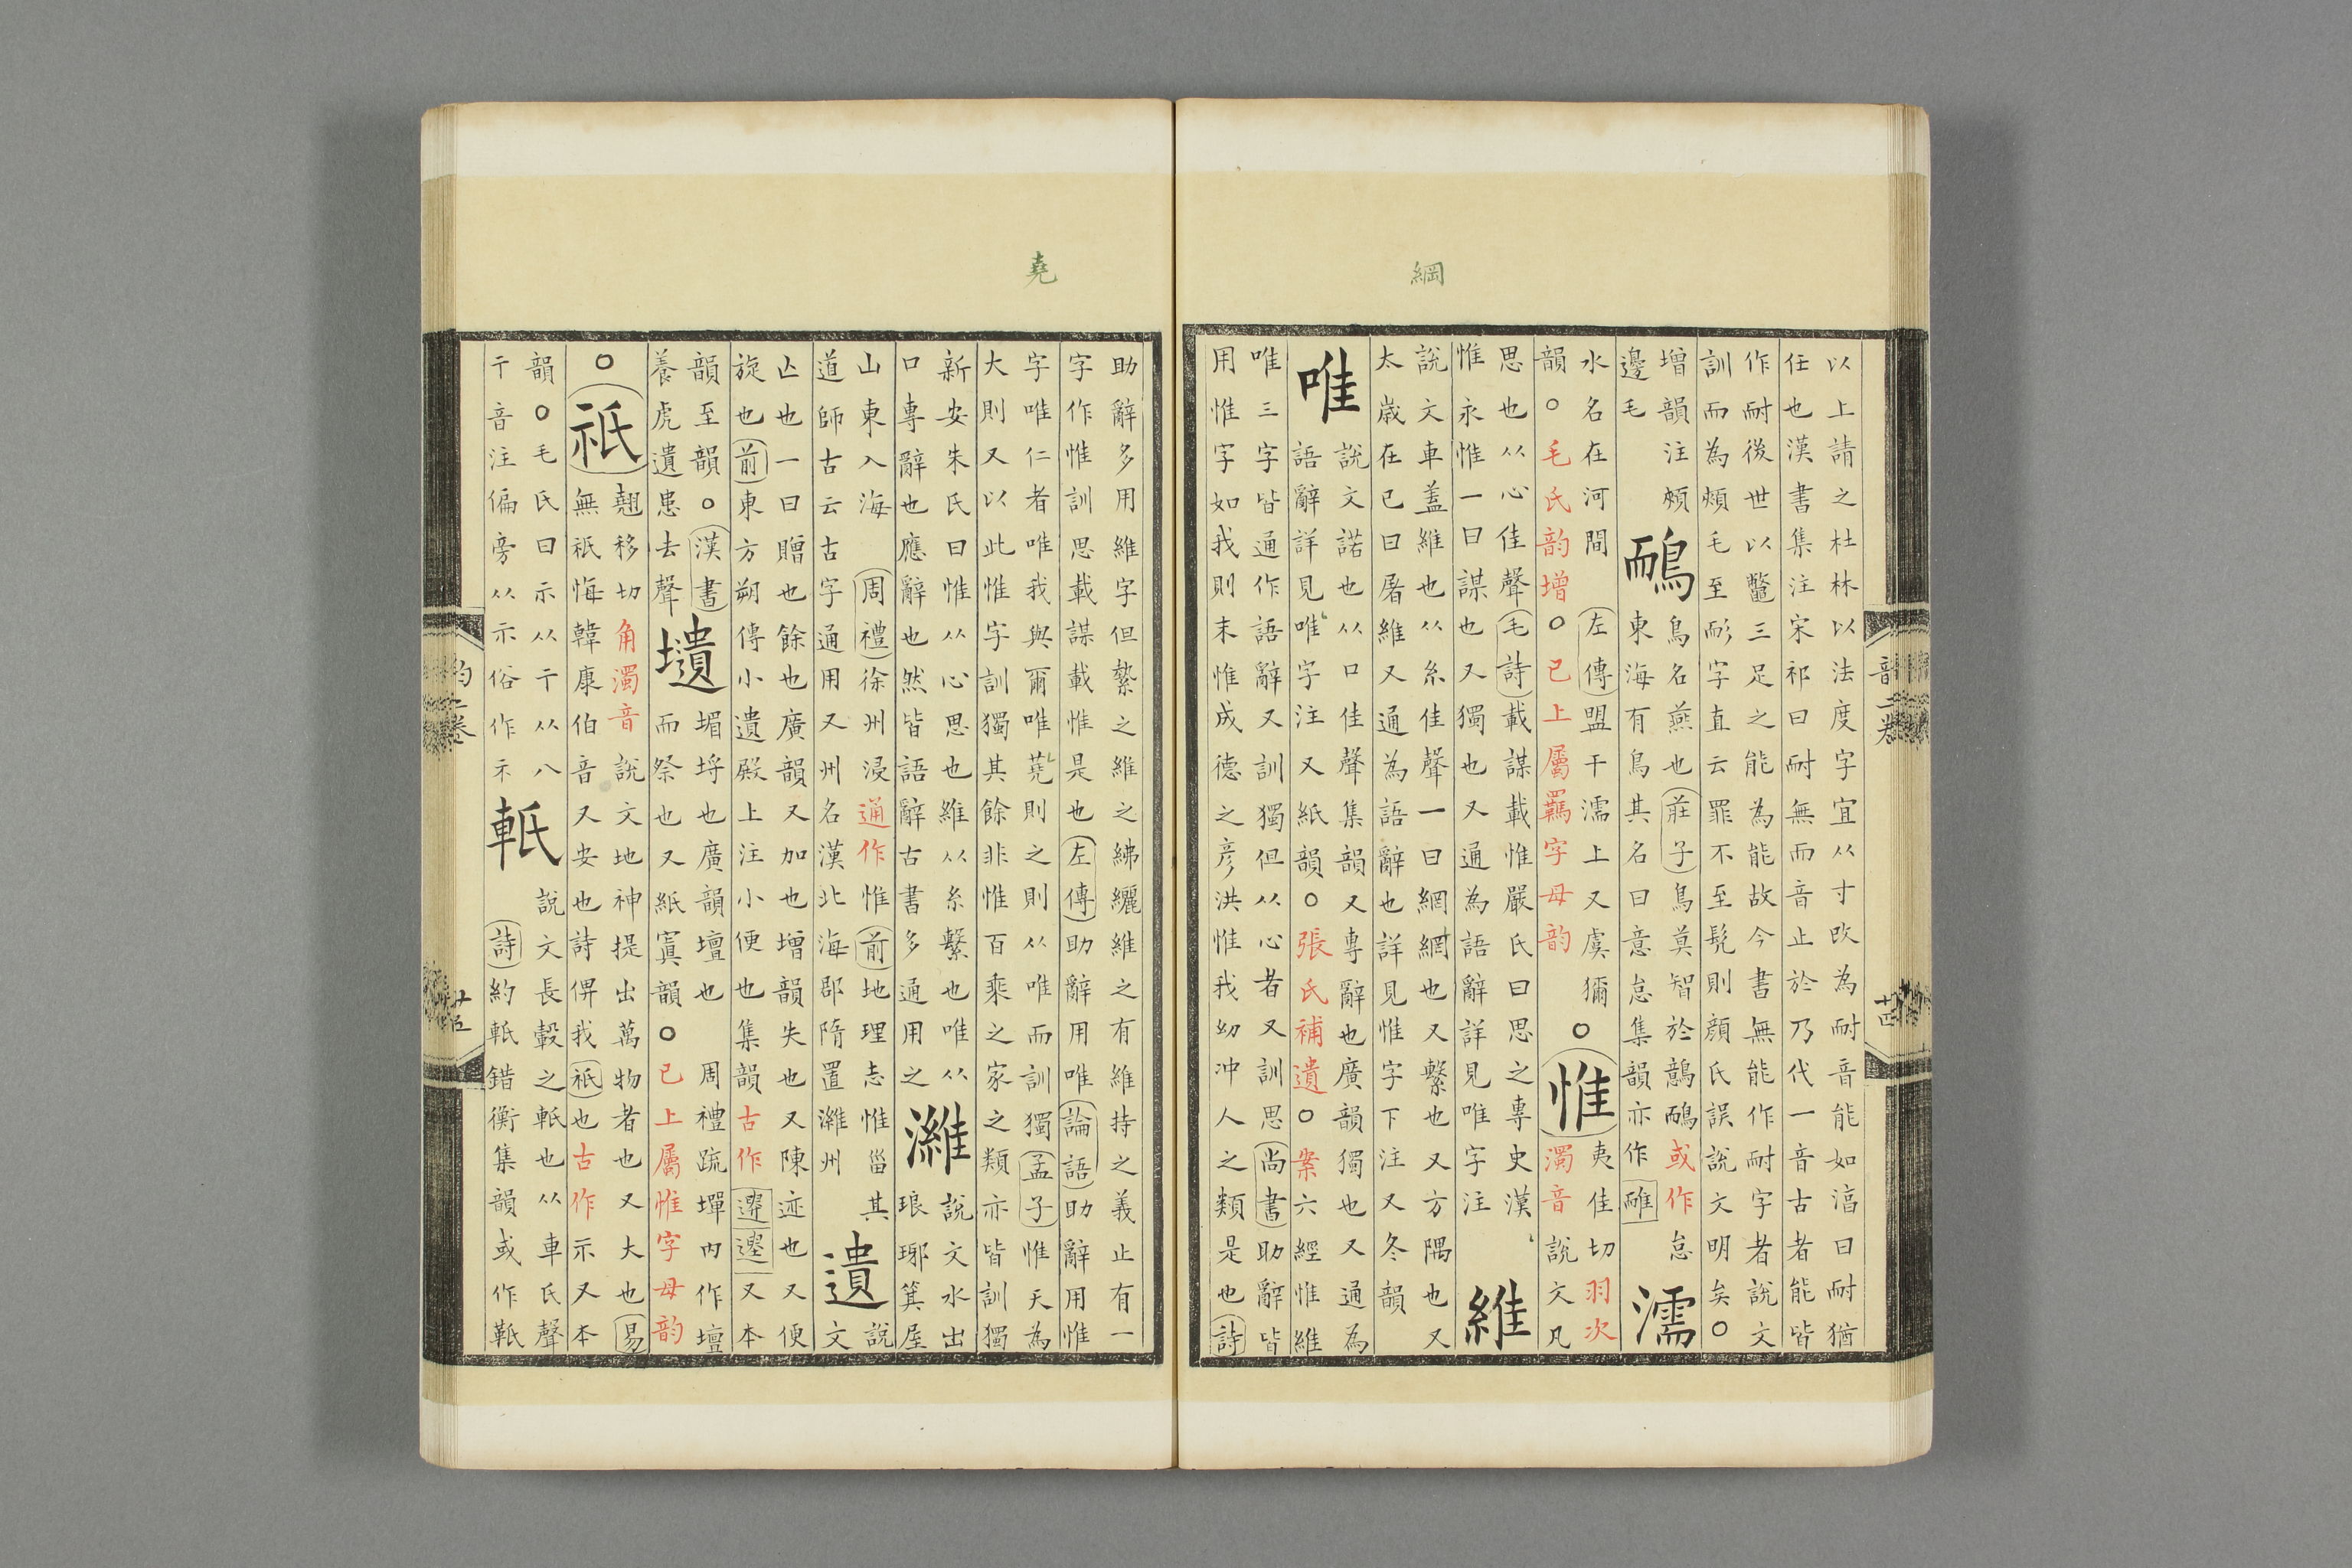 綱
以上請之杜林以法度字宜从寸改為耐音能如湻曰耐猶
任也漢書集注宋祁曰耐無而音止於乃代一音古者能皆
作耐後世以鼈三足之能為能故今書無能作耐字者說文
訓而為頰毛至耏字直云罪不至髡則顔氏誤說文明矣○
增韻注頰
邊毛
鴯
鳥名燕也莊子鳥莫智於鷾鴯或作怠
東海有鳥其名曰意怠集韻亦作𨿵
濡
水名在河間左傳盟于濡上又虞獮
韻○毛氏韵增○已上屬羈字母韵
○惟
夷佳切羽次
濁音說文凡
思也从心隹聲毛詩載謀載惟嚴氏曰思之專史漢
惟永惟一曰謀也又獨也又通為語辭詳見唯字注
維
說文車蓋維也从糸隹聲一曰網綱也又繫也又方隅也又
太歲在已曰屠維又通為語辭也詳見惟字下注又冬韻
唯
說文諾也从口隹聲集韻又專辭也廣韻獨也又通為
語辭詳見唯字注又紙韻○張氏補遺○案六經惟維
唯三字皆通作語辭又訓獨但从心者又訓思尚書助辭皆
用惟字如我則末惟成德之彦洪惟我幼冲人之類是也詩
堯
助辭多用維字但縶之維之紼纚維之有維持之義止有一
字作惟訓思載謀載惟是也左傳助辭用唯論語助辭用惟
字唯仁者唯我與爾唯蕘則之則从唯而訓獨孟子惟天為
大則又以此惟字訓獨其餘非惟百乘之家之類亦皆訓獨
新安朱氏曰惟从心思也維从糸繫也唯从
口專辭也應辭也然皆語辭古書多通用之
濰
說文水出
琅琊箕屋
山東入海周禮徐州浸通作惟前地理志惟甾其
道師古云古字通用又州名漢北海郡隋置濰州
遺
說
文
亾也一曰贈也餘也廣韻又加也增韻失也又陳迹也又便
旋也前東方朔傳小遺殿上注小便也集韻古作𨘢𨗮又本
韻至韻○漢書
養虎遺患去聲
壝
堳埒也廣韻壇也周禮疏墠內作壇
而祭也又紙寘韻○已上屬惟字母韵
○祇
翹移切角濁音說文地神提出萬物者也又大也易
無祇悔韓康伯音又安也詩俾我祇也古作示又本
韻○毛氏曰示从干从八
干音注偏旁从示俗作礻
軝
說文長轂之軝也从車氏聲
詩約軝錯衡集韻或作䡋